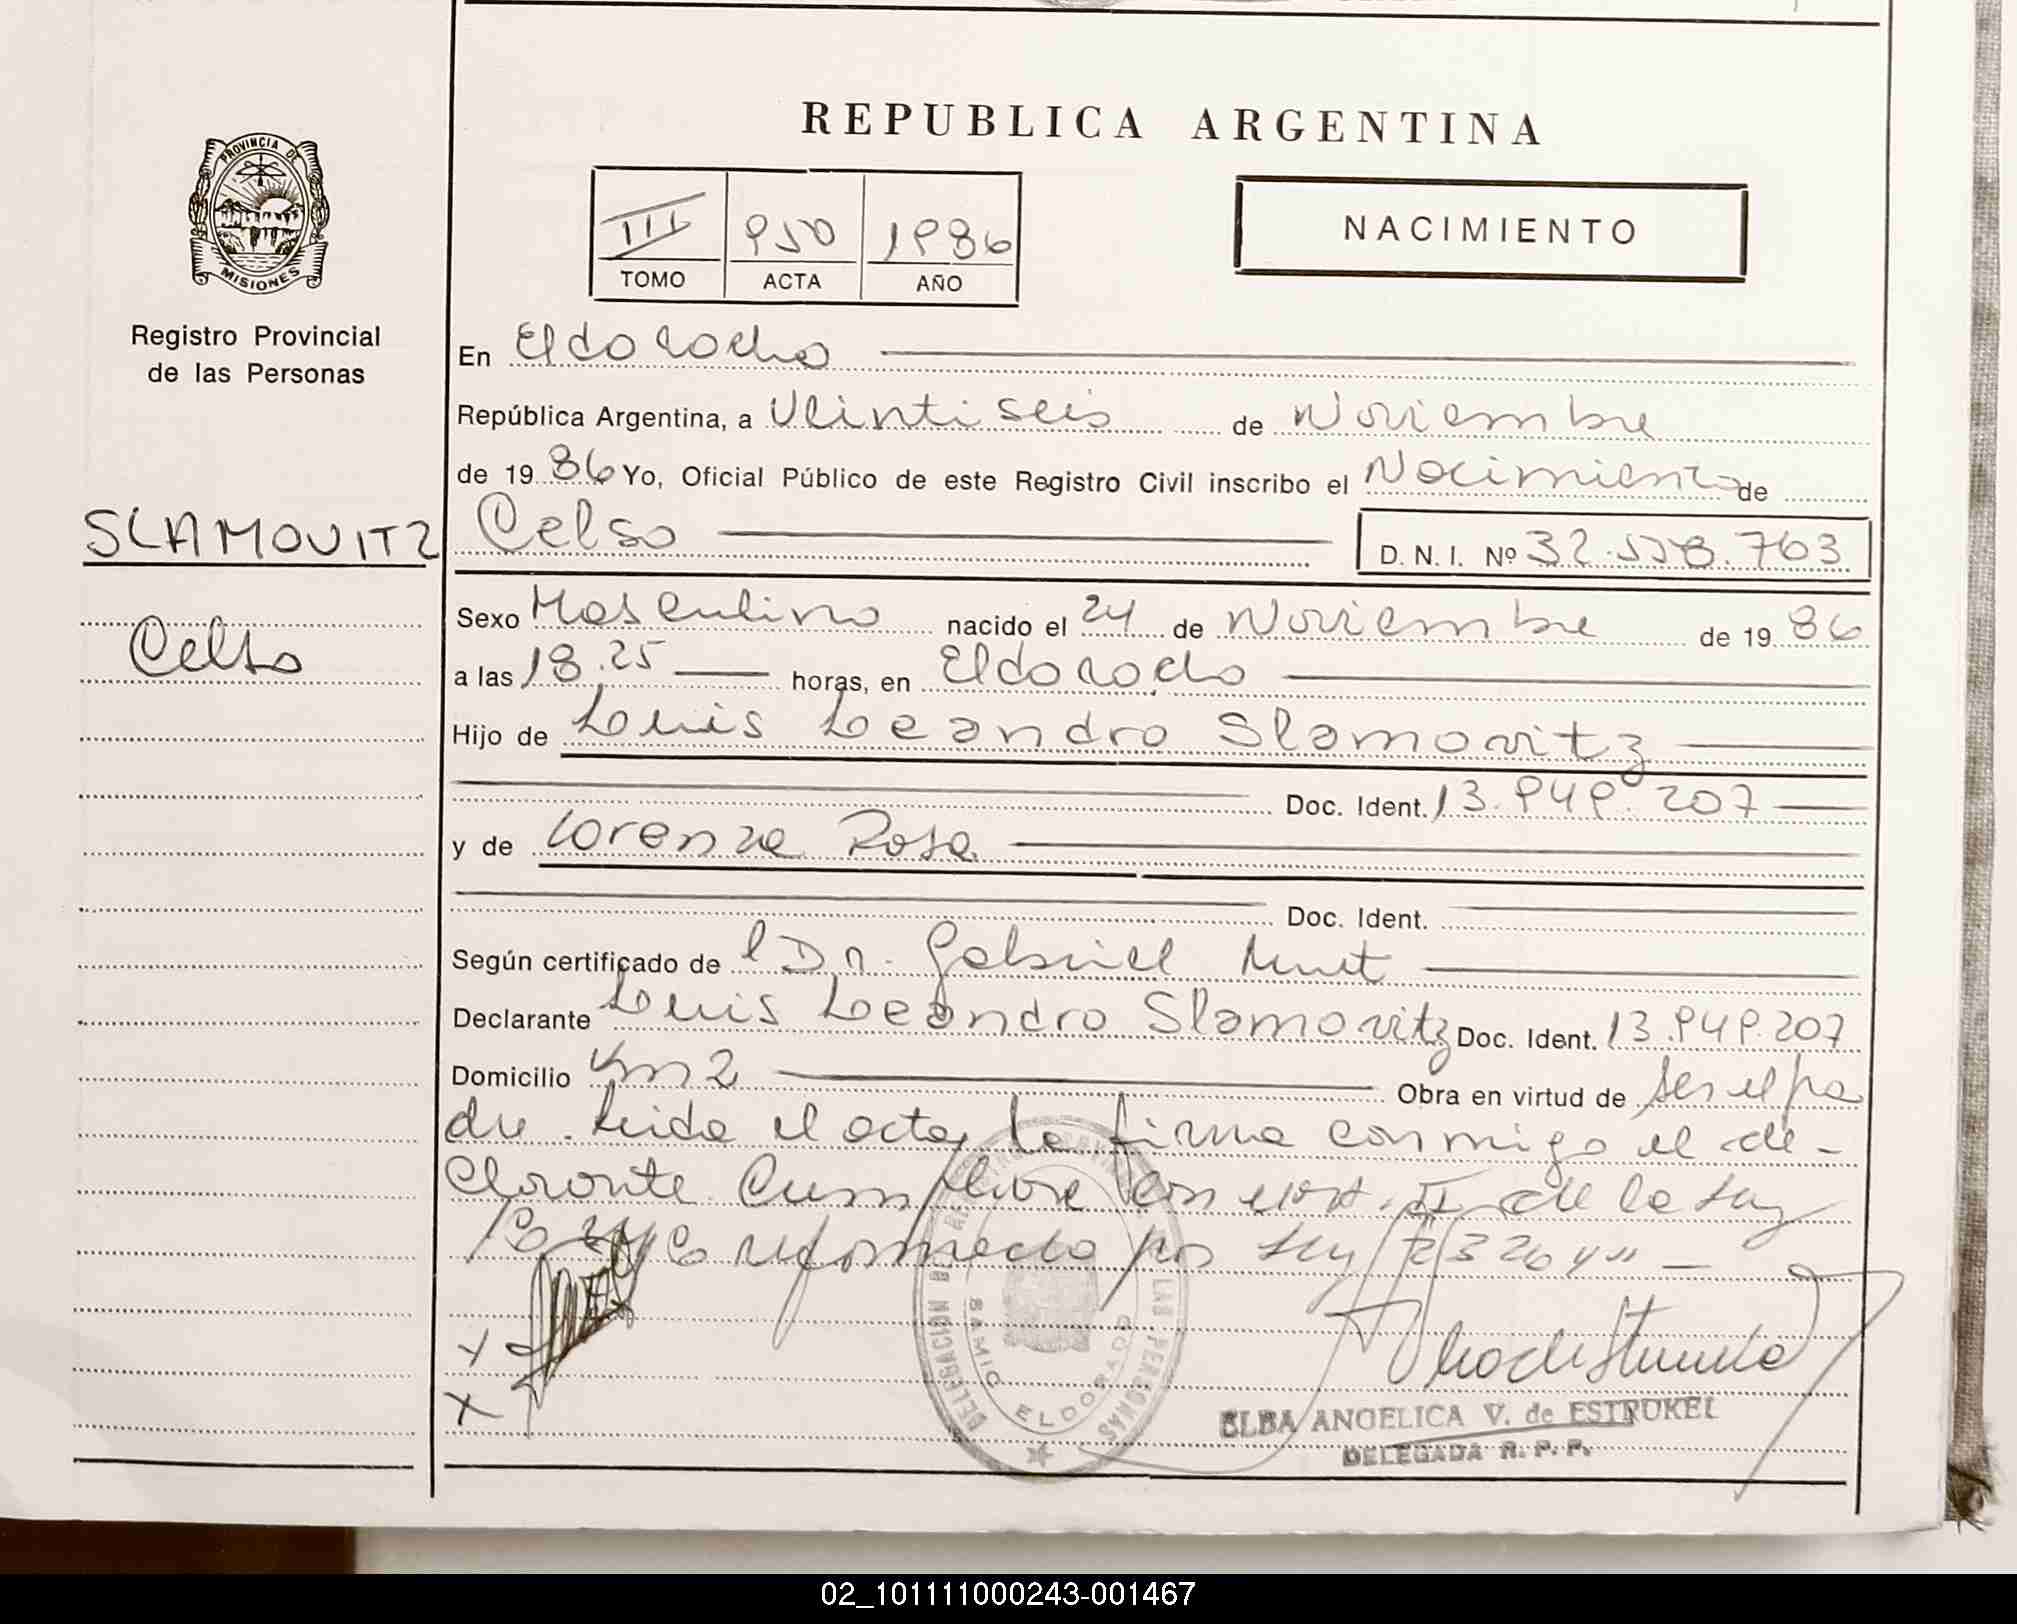 REPUBLICA ARGENTINA
PROVINCIA DE
MISIONES
Registro Provincial
de las Personas
III 950 1986
TOMO ACTA AÑO
NACIMIENTO
En Eldorado
República Argentina, a Veintiseis de Noviembre
de 1986 Yo, Oficial Público de este Registro Civil inscribo el Nacimiento de
SLAMOVITZ
Celso
Celso D. N. I. Nº 32.558.763
Sexo Masculino nacido el 24 de Noviembre de 1986
a las 18.25 horas, en Eldorado
Hijo de Luis Leandro Slamovitz
Doc. Ident. 13.949.207
y de Lorenza Rosa
Doc. Ident.
Según certificado de l Dr. Gabriel
Declarante Luis Leandro Slamovitz Doc. Ident. 13.949.207
Domicilio Km 2 Obra en virtud de ser el pa
dre. Leida el acta, la firma conmigo el de-
clarante. con el art. II de la Ley
reformado por Ley
DELEGACION LAS PERSONAS
SAMIC ELDORADO
ELBA ANGELICA V. de ESTRUKEL
DELEGADA R. P. P.
02_101111000243-001467